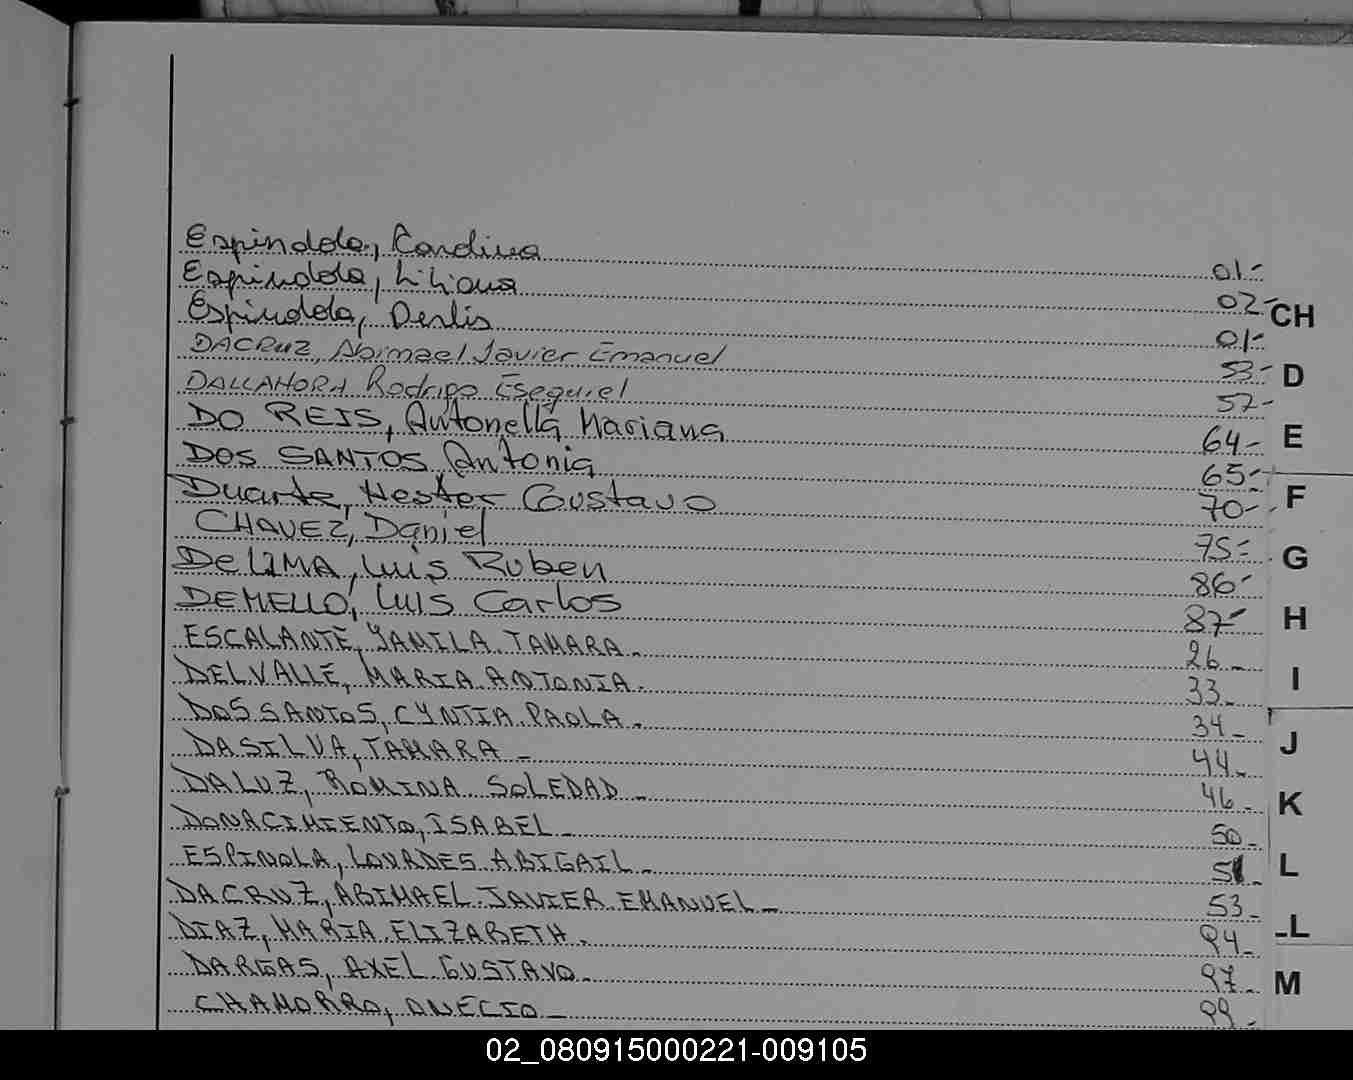 Espindola, Carolina 01-
Espindola, Liliana 02-
CH
Espindola, Derlis 01-
DACRUZ, Abimael Javier Emanuel 53-
D
DALLAHORA Rodrigo Esequiel 57-
DO REIS, Antonella Mariana 64-
E
DOS SANTOS, Antonia 65-
Duarte, Hester Gustavo 70-
F
CHAVEZ, Daniel 75-
G
De LIMA, Luis Ruben 86-
DEMELLO, Luis Carlos 87-
H
ESCALANTE, YAMILA TAMARA. 26-
DELVALLE, MARIA ANTONIA. 33-
I
DOS SANTOS, CYNTIA PAOLA. 34-
DASILVA, TAMARA - 44-
J
DALUZ, ROMINA SOLEDAD - 46-
K
DONACIMIENTO, ISABEL - 50-
ESPINOLA, LOURDES ABIGAIL - 51-
L
DACRUZ, ABIMAEL JAVIER EMANUEL - 53-
DIAZ, MARIA ELIZABETH. 94-
LL
DARGAS, AXEL GUSTAVO - 97-
M
CHAMORRO, ANECIO - 99-
02_080915000221-009105